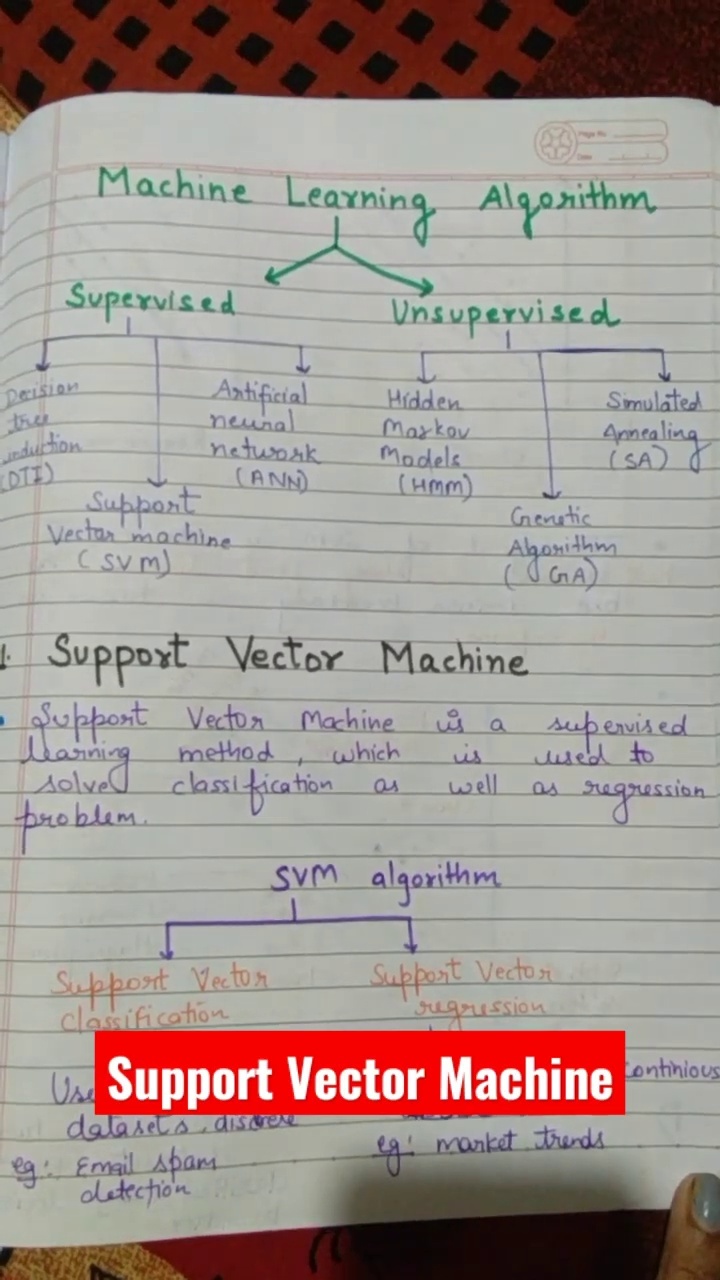 Page No.
Date
Machine Learning Algorithm
Supervised
Unsupervised
Decision
tree
induction
(DTI)
Support
Vector machine
(SVM)
Artificial
neural
network
(ANN)
Hidden
Markov
Models
(HMM)
Genetic
Algorithm
(GA)
Simulated
Annealing
(SA)
1. Support Vector Machine
Support Vector Machine is a supervised
learning method, which is used to
solve classification as well as regression
problem.
SVM algorithm
Support Vector
classification
Support Vector
regression
Support Vector Machine
continious
datasets, discrere
eg: Email spam
detection
eg: market trends